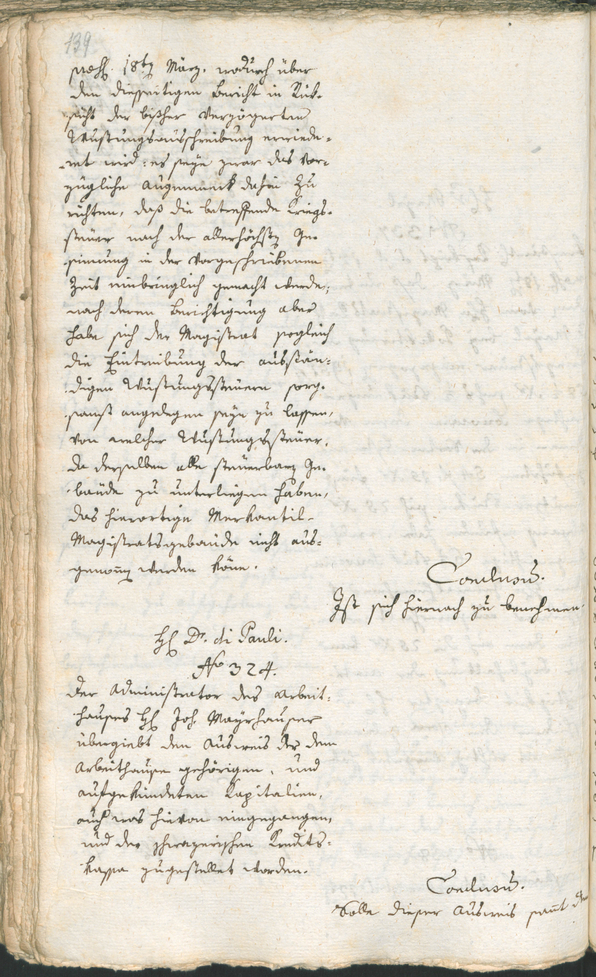 139
präs. 18ten März, wodurch über
den diesseitigen Bericht in Rük-
sicht der bisher verzögerten
Wustungsausschreibung erwiede-
ret wird: es seye zwar das vor-
zügliche Augenmerk dahin zu
richten, daß die betreffende Kriegs-
steuer nach der allerhöchsten Ge-
sinnung in der vorgeschriebenen
Zeit einbringlich gemacht werde;
nach deren Berichtigung aber
habe sich der Magistrat sogleich
die Eintreibung der ausstän-
digen Wustungssteuern sorg-
samst angelegen seyn zu lassen,
von welcher Wustungssteuer,
da derselben alle steuerbaren Ge-
bäude zu unterliegen haben,
das hierortige Merkantil-
Magistratsgebäude nicht aus-
genommen werden könne.
Conclusum.
Ist sich hiernach zu benehmen.
H. Dr. di Pauli.
No 324.
Der Administrator des Arbeit-
hauses H. Joh. Mayrhauser
übergiebt den Ausweis der dem
Arbeithause gehörigen, und
aufgekündeten Kapitalien,
auch was hievon eingegangen,
und der schwazerischen Kredits-
kassa zugestellet worden.
Conclusum.
Solle dieser Ausweis samt